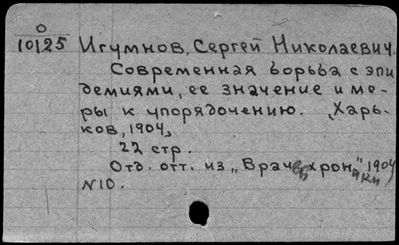 0
10125 Игумнов, Сергей Николаевич.
Современная борьба с эпи
демиями, ее значение и ме-
ры к упорядочению. Харь-
ков, 1904,
22 стр.
Отд. отт. из „Врачебн хроники" 1904
N10.